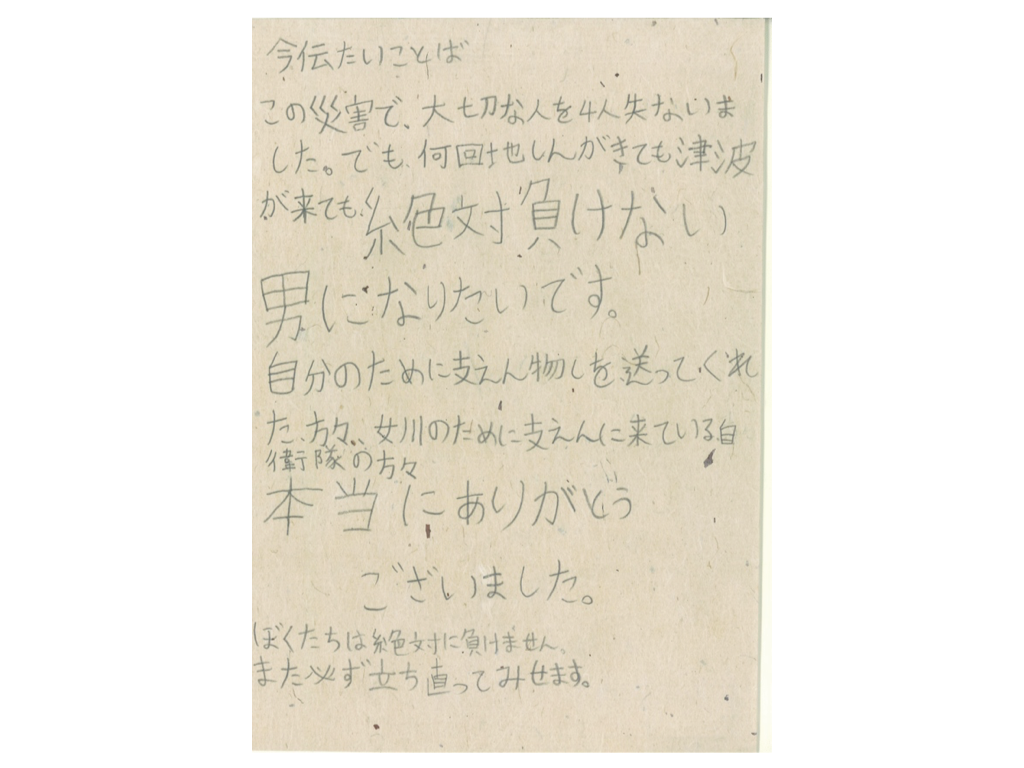 今伝たいことば
この災害で、大切な人を4人失ないま
した。でも、何回地しんがきても津波
が来ても、絶対負けない
男になりたいです。
自分のために支えん物しを送ってくれ
た、方々、女川のために支えんに来ている自
衛隊の方々
本当にありがとう
ございました。
ぼくたちは絶対に負けません、
また必ず立ち直ってみせます。